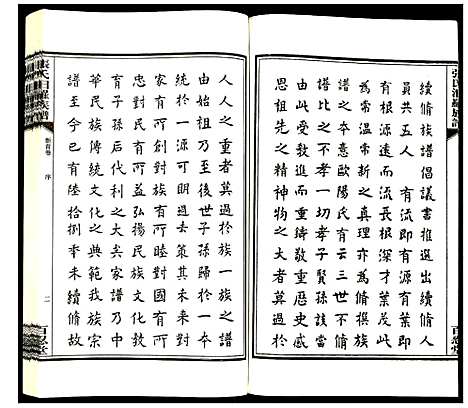 續修族譜倡議書推選出續修人
員共五人　有流即有源有葉即
有根源遠而流長根深才葉茂此
為常溫常新之真理亦為修撰族
譜之本意歐陽氏有云三世不修
譜比之不孝一切孝子孫該當
進而重鑄敬重歷史感
恩祖先之精神物之大者莫過於
人人之重者莫過於族一族之譜
始祖乃至後世子孫歸於一
源可以一統對其未來對
民有所創對族有所睦對國有所
忠對民有所益弘揚民族文化教
育子孫后代利之大矣家譜乃中
華民族傳統文化之典範我族宗
譜至今已有陸拾捌年未續修故
張氏汨羅族譜
序
二
百忍堂